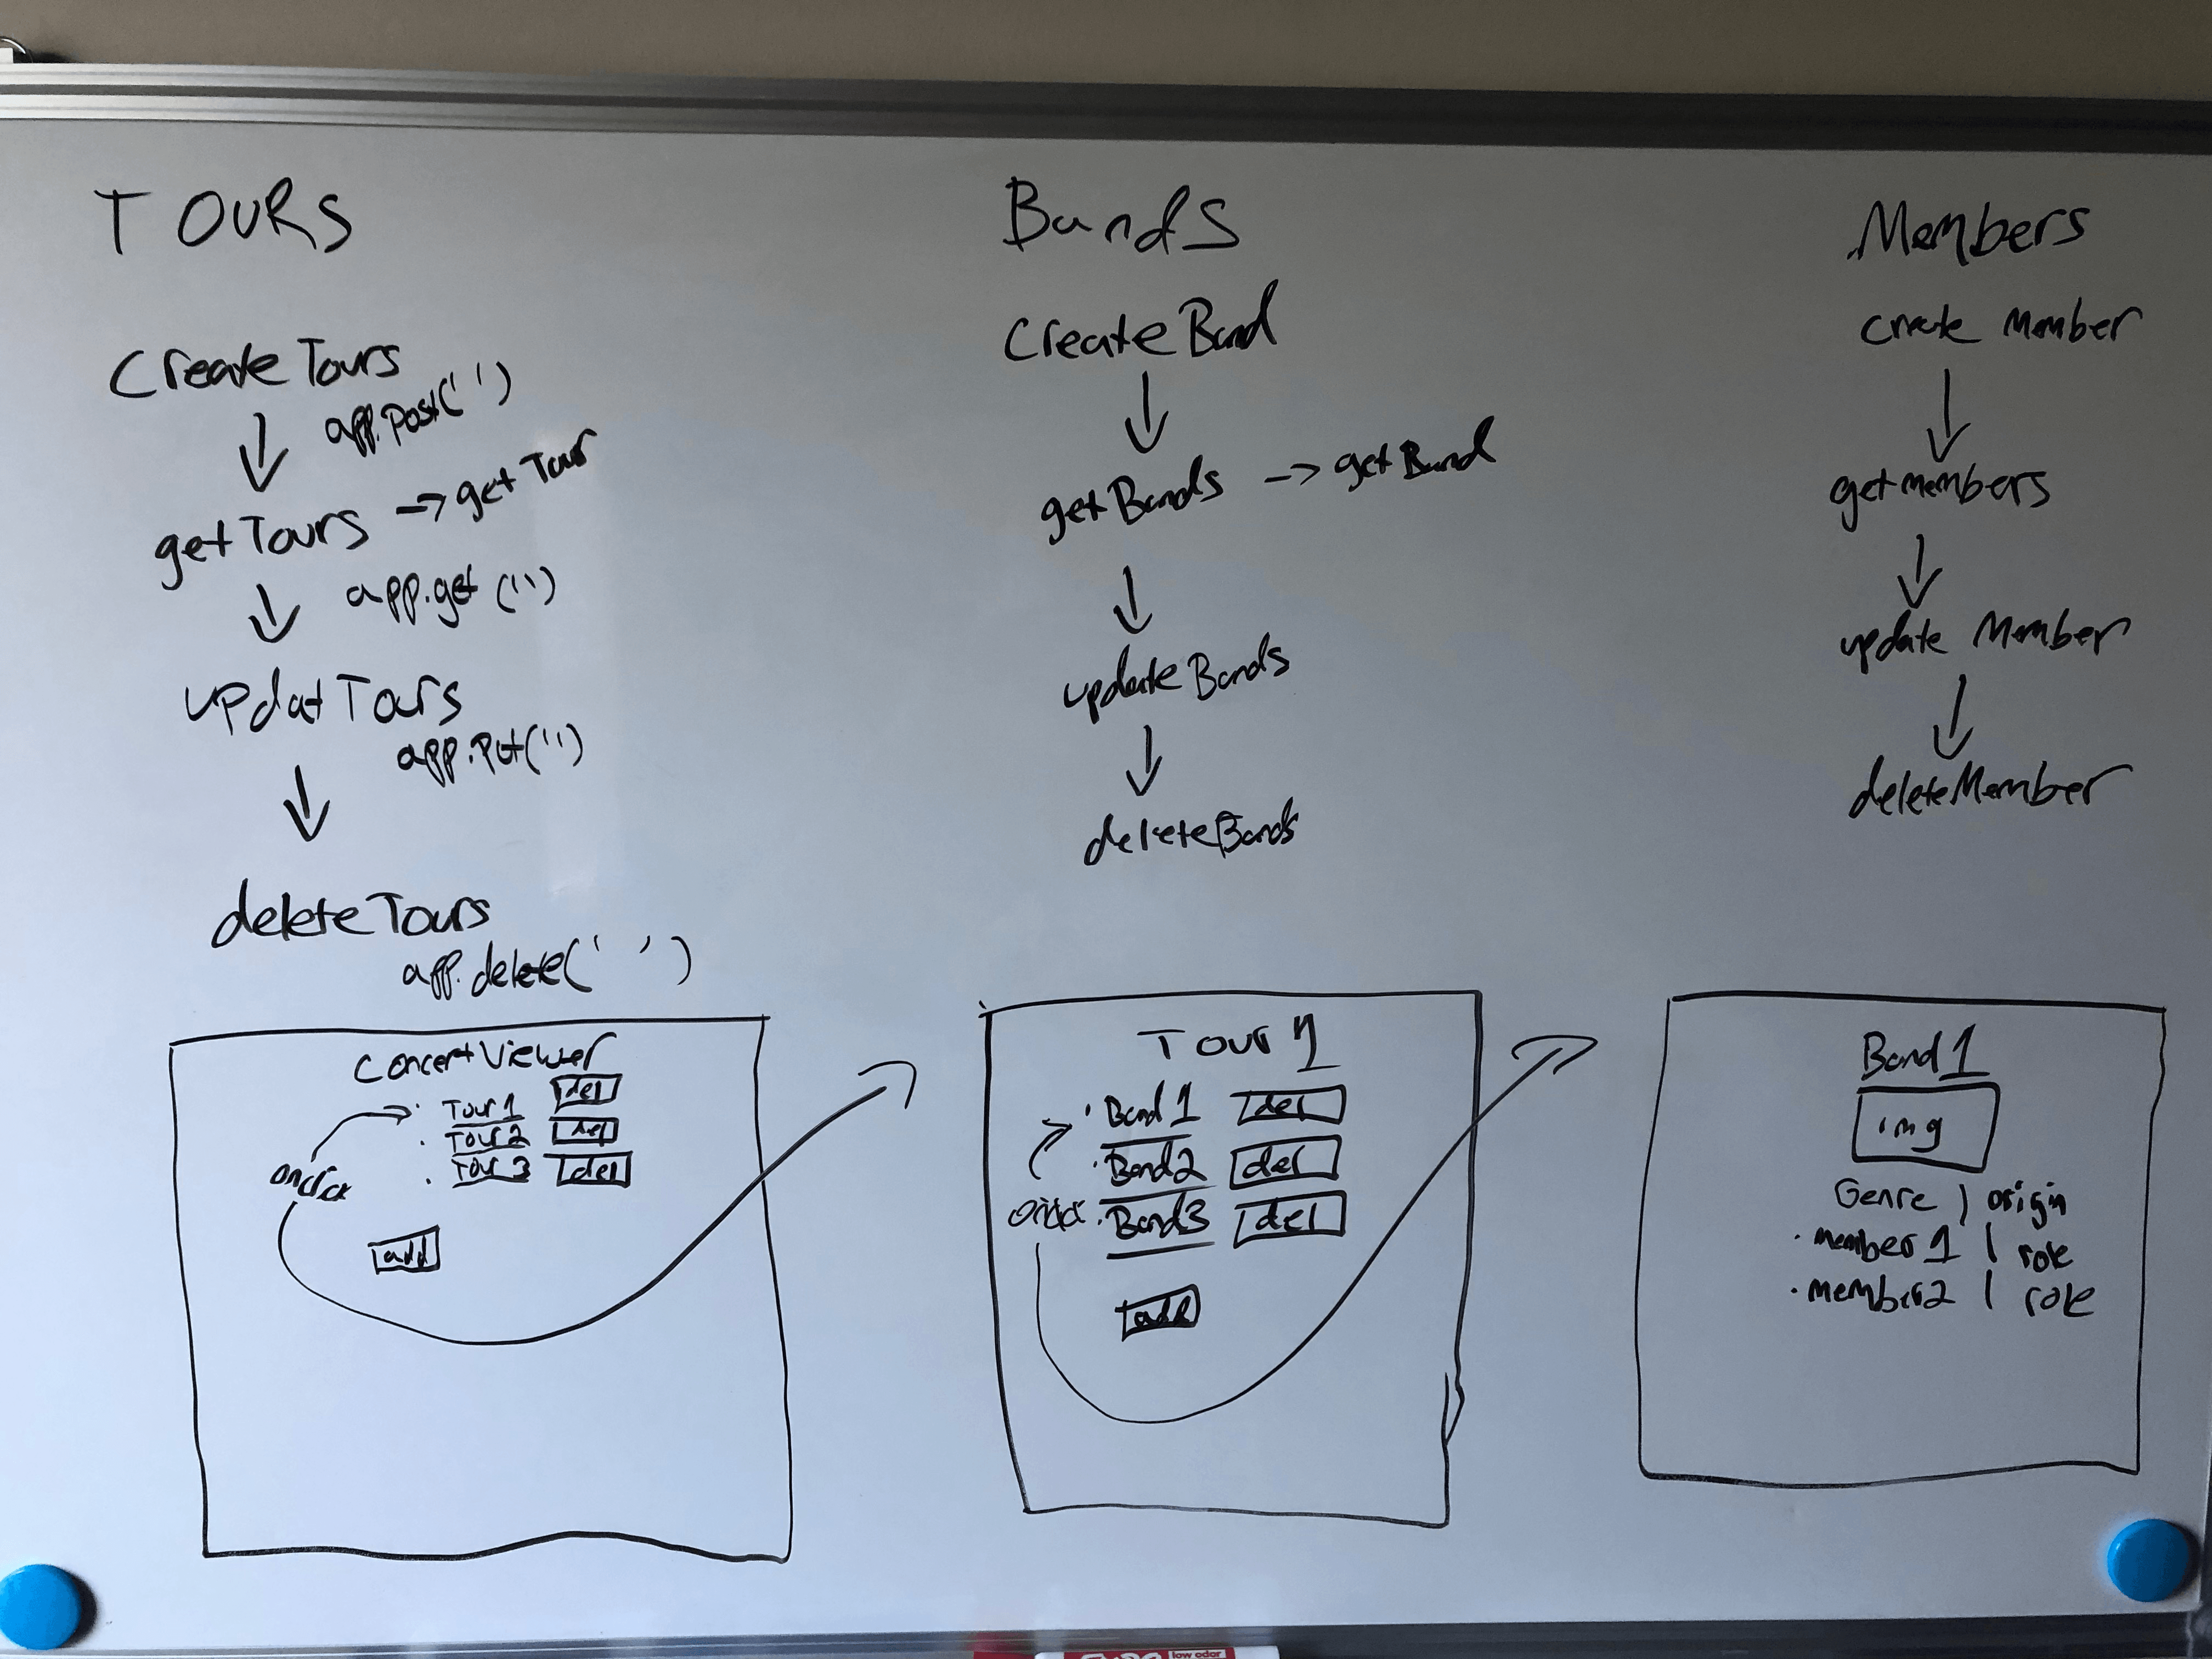 TOURS
Create Tours
app.post(' ')
getTours -> get Tour
app.get ('')
updat Tours
app.put('')
delete Tours
app.delete(' ')
Concert Viewer
Tour 1 del
Tour 2 del
Tour 3 del
add
Bands
Create Band
get Bands -> get Band
update Bands
delete Bands
Tour 1
Band 1 del
Band 2 del
Band 3 del
add
Members
create Member
getmembers
update Member
deleteMember
Band 1
img
Genre | origin
member 1 | role
member 2 | role
low odor